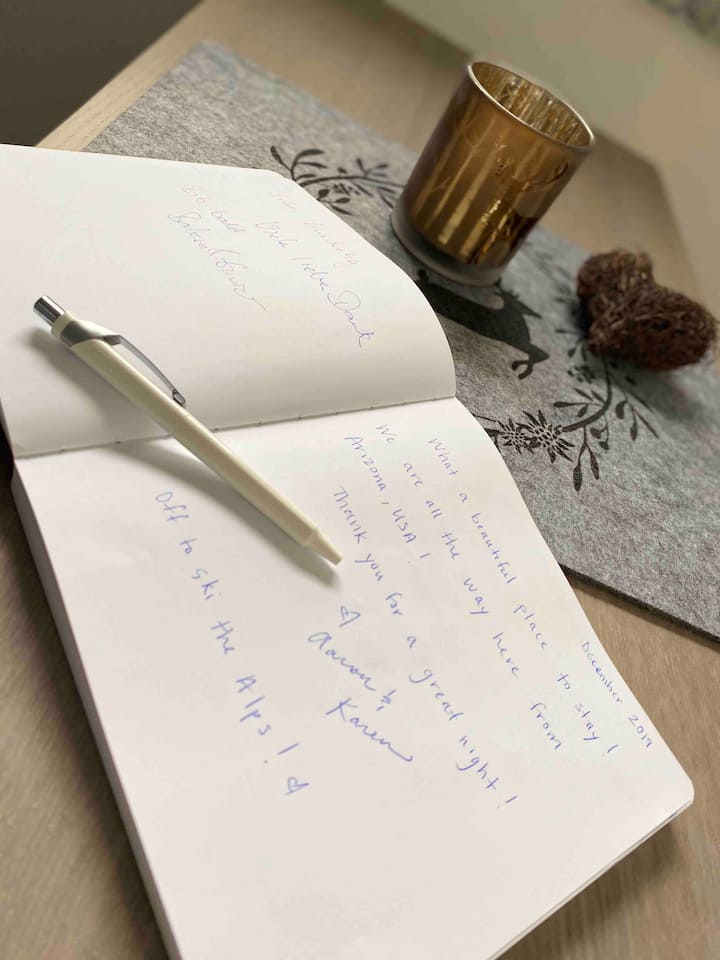 Viele liebe Dank
Bis bald
December 2019
What a beautiful place to stay!
We are all the way here from
Arizona, USA!
Thank you for a great night!
♡ Aaron &
Karen
Off to ski the Alps! ♡